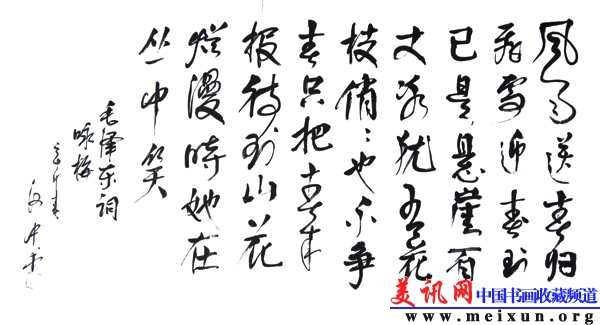 风雨送春归
飞雪迎春到
已是悬崖百
丈冰犹有花
枝俏〻也不争
春只把春来
报待到山花
烂漫时她在
丛中笑
毛泽东词
咏梅
美讯网 中国书画收藏频道
www.meixun.org